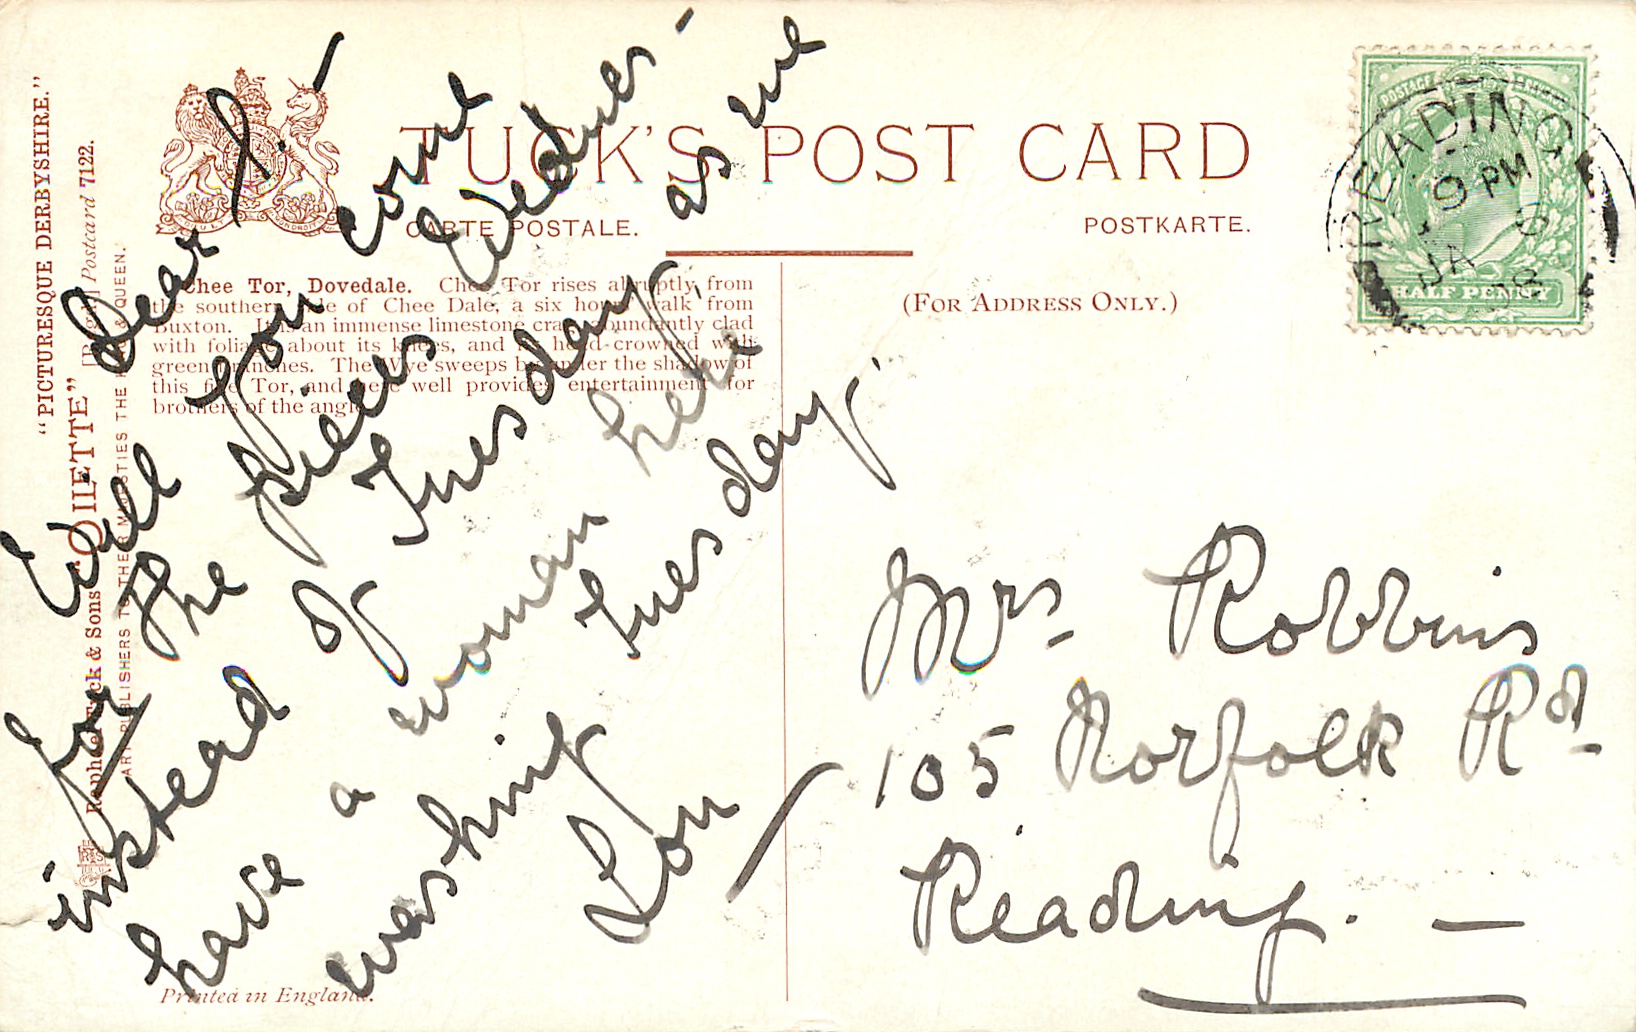 "PICTURESQUE DERBYSHIRE."
Raphael Tuck & Sons "OILETTE" [Regd.] Postcard 7122.
ART PUBLISHERS TO THEIR MAJESTIES THE KING & QUEEN.
TUCK'S POST CARD
CARTE POSTALE.
POSTKARTE.
Chee Tor, Dovedale. Chee Tor rises abruptly from
the southern side of Chee Dale, a six hours' walk from
Buxton. It is an immense limestone crag, abundantly clad
with foliage about its knees, and its head crowned with
green branches. The Wye sweeps by under the shadow of
this fine Tor, and here well provides entertainment for
brothers of the angle.
(FOR ADDRESS ONLY.)
READING
9 PM
JA 6
08
POSTAGE
HALF PENNY
Dear L. —
Will you come
for the pieces Wednes-
instead of Tuesday, as we
have a woman here
washing Tuesday.
Lou
Mrs Robbins
105 Norfolk Rd
Reading. —
Printed in England.